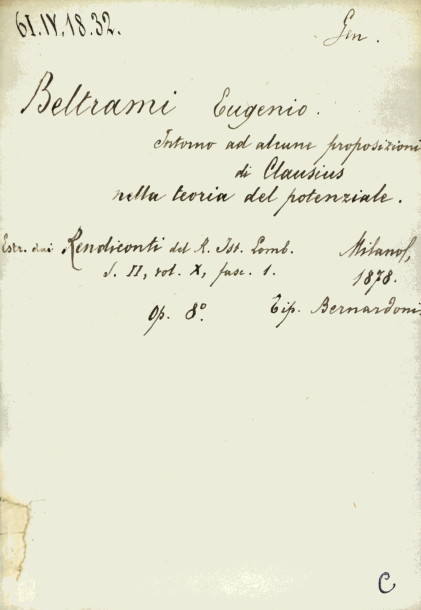 61.IV.18.32.
Gen.
Beltrami Eugenio.
Intorno ad alcune proposizioni
di Clausius
nella teoria del potenziale.
Estr. dai Rendiconti del R. Ist. Lomb.
S. II, vol. X, fasc. 1.
Milano,
1878.
Op. 8°.
Tip. Bernardoni.
C